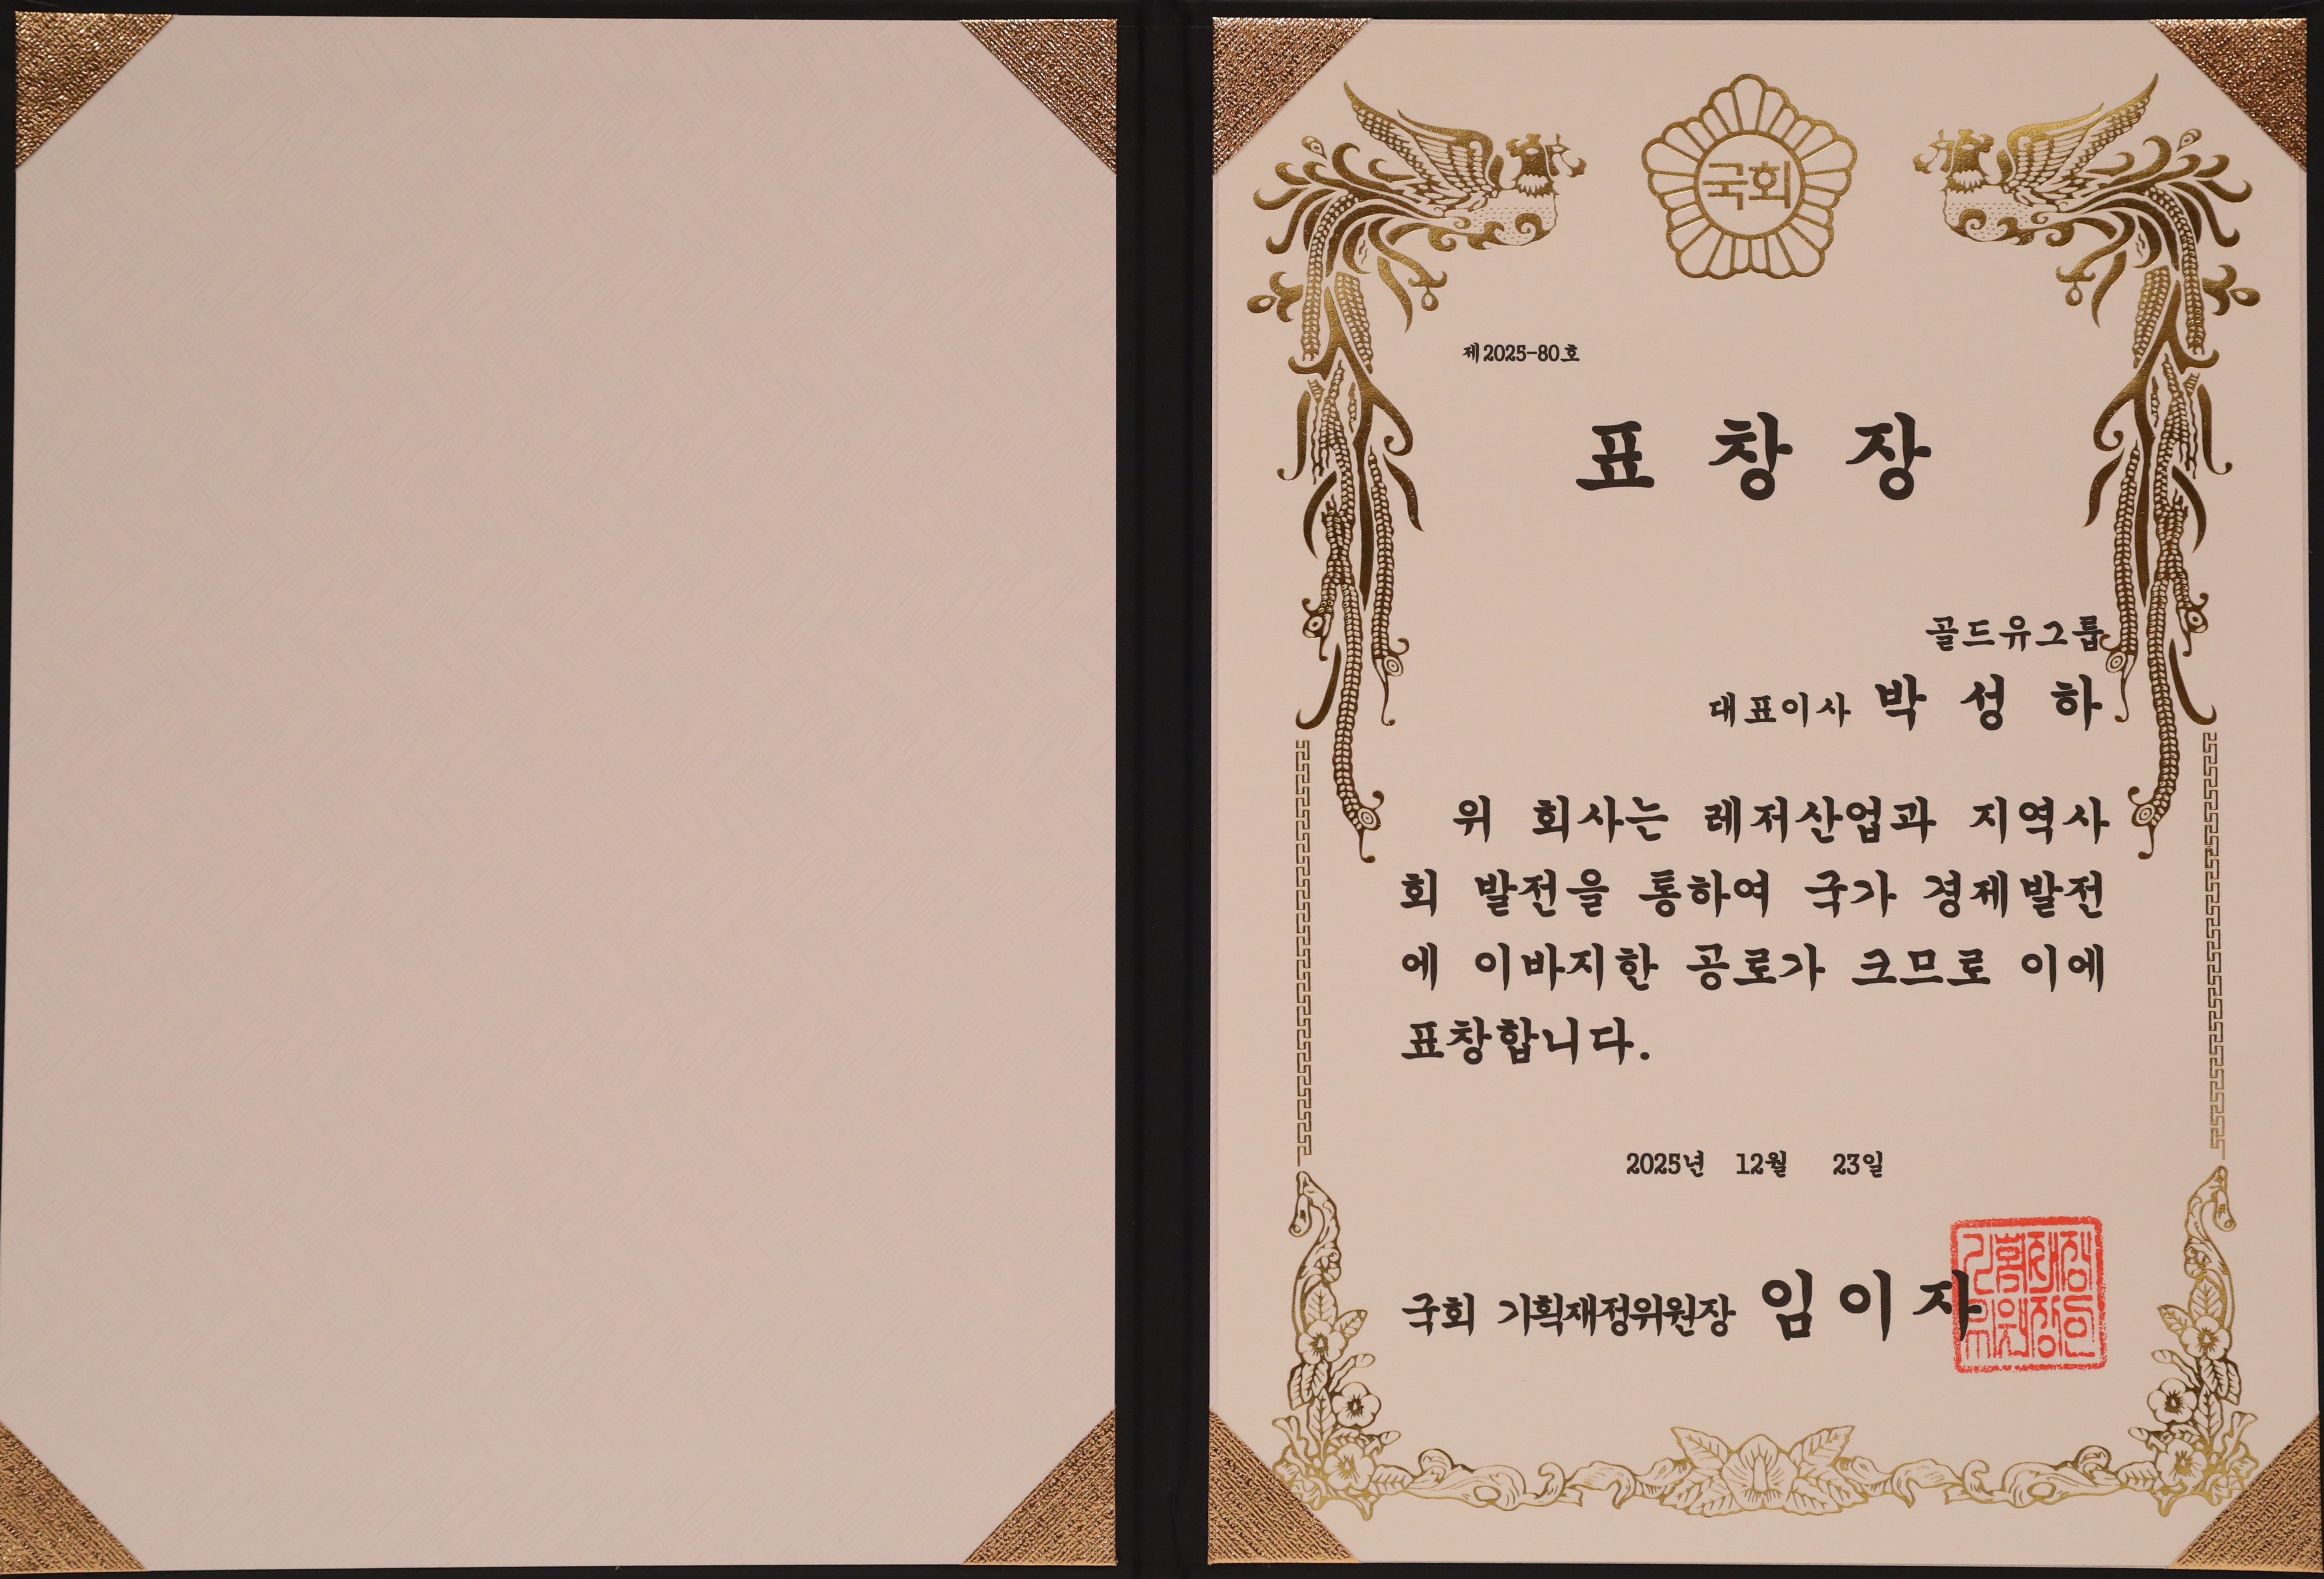 국회
제2025-80호
표 창 장
골드유그룹
대표이사 박 성 하
위 회사는 레저산업과 지역사
회 발전을 통하여 국가 경제발전
에 이바지한 공로가 크므로 이에
표창합니다.
2025년 12월 23일
국회 기획재정위원장 임이자